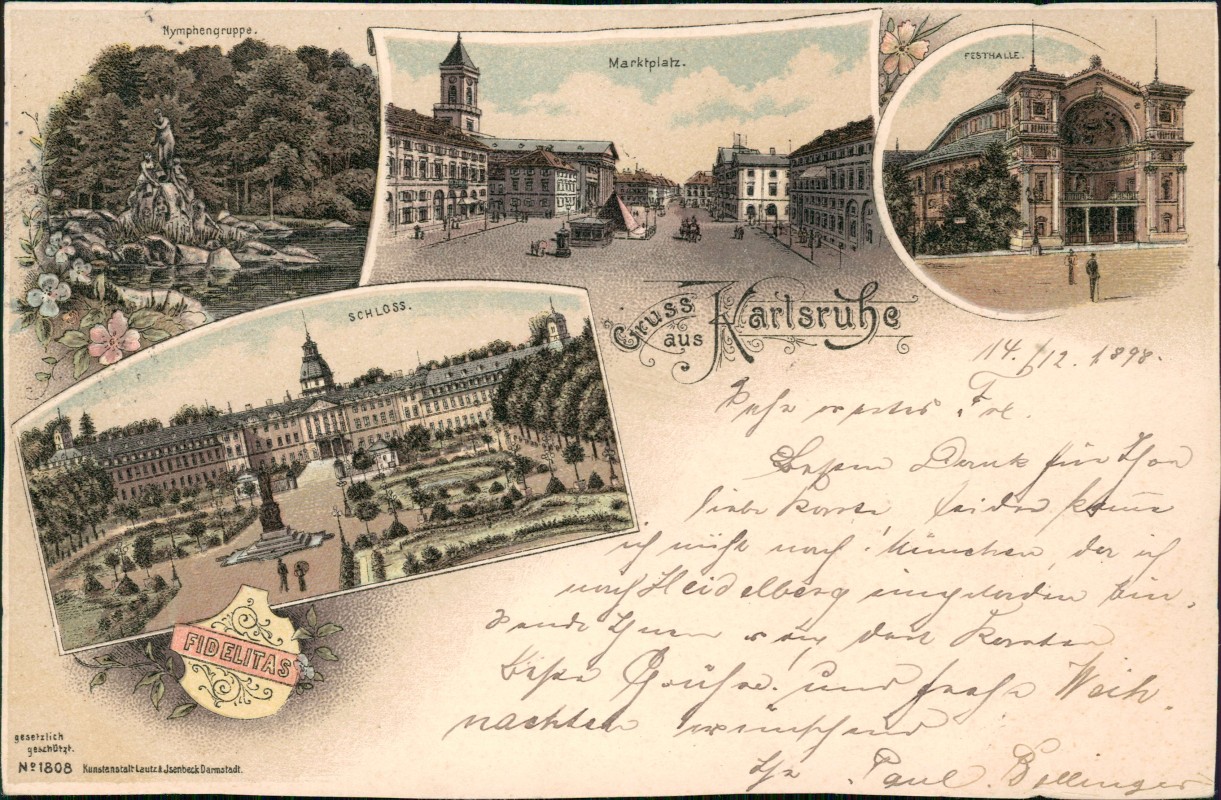 Nymphengruppe.
Marktplatz.
FESTHALLE.
SCHLOSS.
Gruss
aus Karlsruhe
14./12. 1898.
Sehr wertes Frl.
Besten Dank für Ihre
liebe Karte leider komme
ich nicht nach München, da ich
nach Heidelberg eingeladen bin,
sende Ihnen von dort Karten
Beste Grüße und frohe Weih
nachten wünschend
Ihr Paul Bollinger
FIDELITAS
gesetzlich
geschützt.
No 1808 Kunstanstalt Lautz & Jsenbeck Darmstadt.